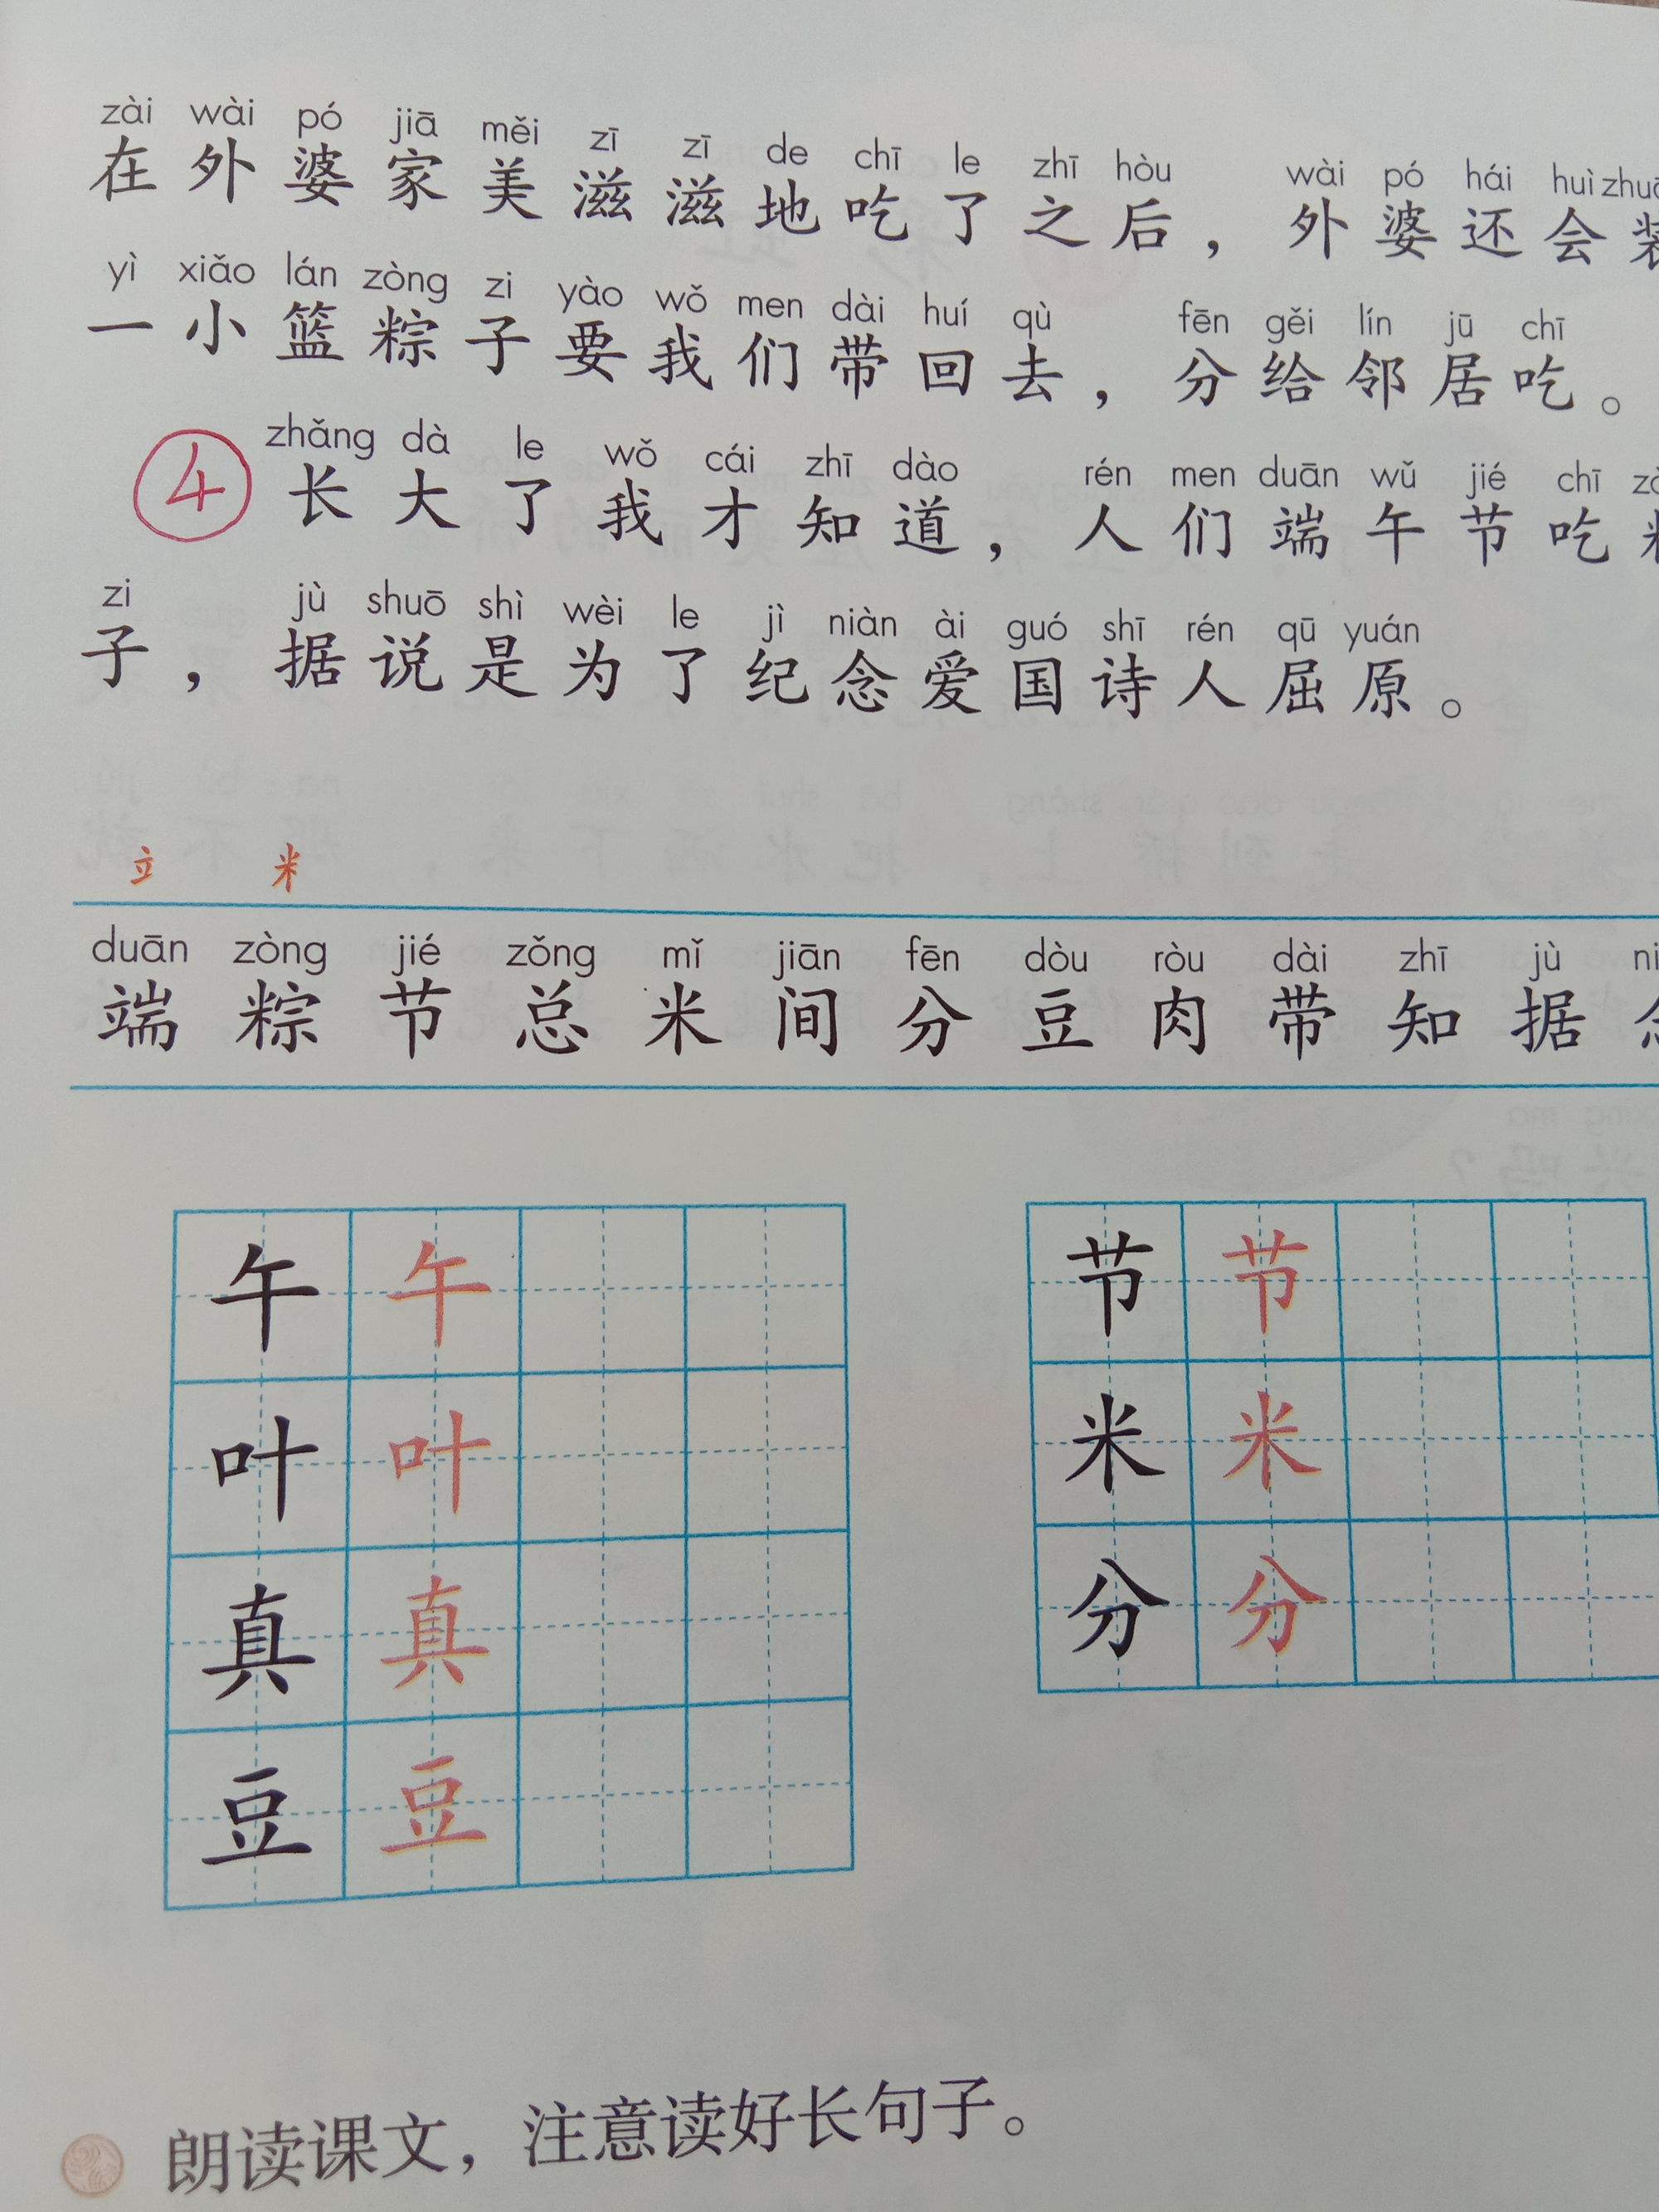 zài wài pó jiā měi zī zī de chī le zhī hòu wài pó hái huì
在外婆家美滋滋地吃了之后，外婆还会装
yì xiǎo lán zòng zi yào wǒ men dài huí qù fēn gěi lín jū chī
一小篮粽子要我们带回去，分给邻居吃。
zhǎng dà le wǒ cái zhī dào rén men duān wǔ jié chī
④长大了我才知道，人们端午节吃
zi jù shuō shì wèi le jì niàn ài guó shī rén qū yuán
子，据说是为了纪念爱国诗人屈原。
立 米
duān zòng jié zǒng mǐ jiān fēn dòu ròu dài zhī jù
端 粽 节 总 米 间 分 豆 肉 带 知 据
午 午 节 节
叶 叶 米 米
真 真 分 分
豆 豆
朗读课文，注意读好长句子。